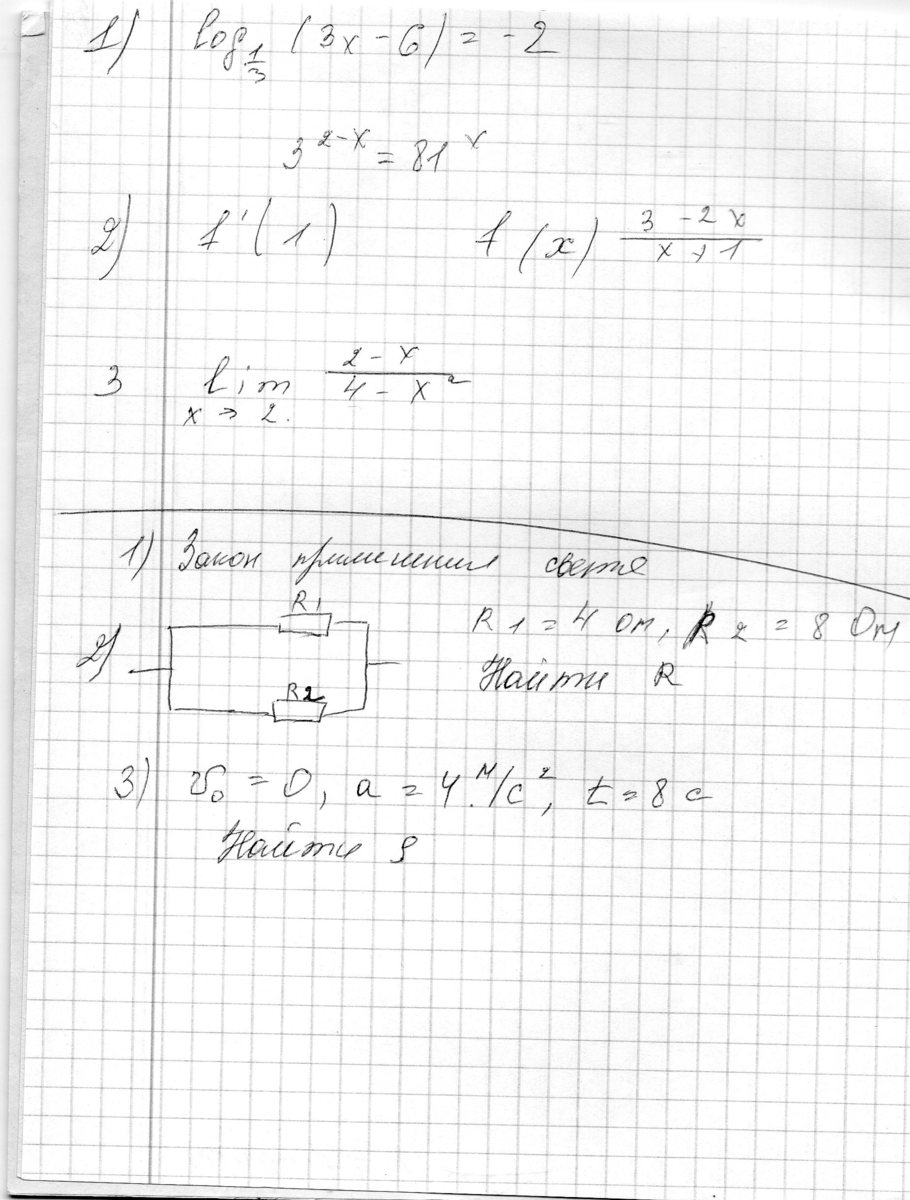 1) log_{1/3} (3x - 6) = -2
3^{2-x} = 81^x
2) f'(1) f(x) \frac{3 - 2x}{x + 1}
3 lim_{x → 2.} \frac{2 - x}{4 - x^2}
1) Закон света
R1 R1 = 4 Ом, R2 = 8 Ом
2) Найти R
R2
3) v_0 = 0, a = 4 м/с^2, t = 8 с
Найти S